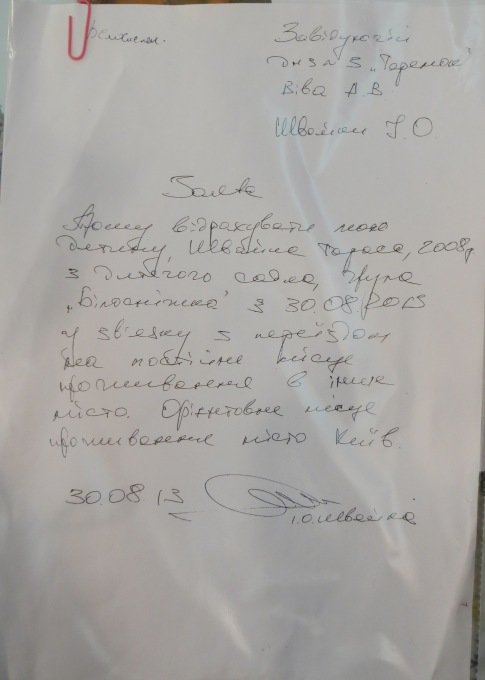 Завідуючій
ДНЗ № 3 „Теремок"
Віва А.В.
Швайки І.О.
Заява
Прошу відрахувати мою
дитину, Швайка Тараса, 2008р
з дитячого садка, група
„Білосніжка" з 30.08.2013
у зв'язку з переїздом
на постійне місце
проживання в інше
місто. Орієнтовне місце
проживання місто Київ.
30.08 13
І.О.Швайка